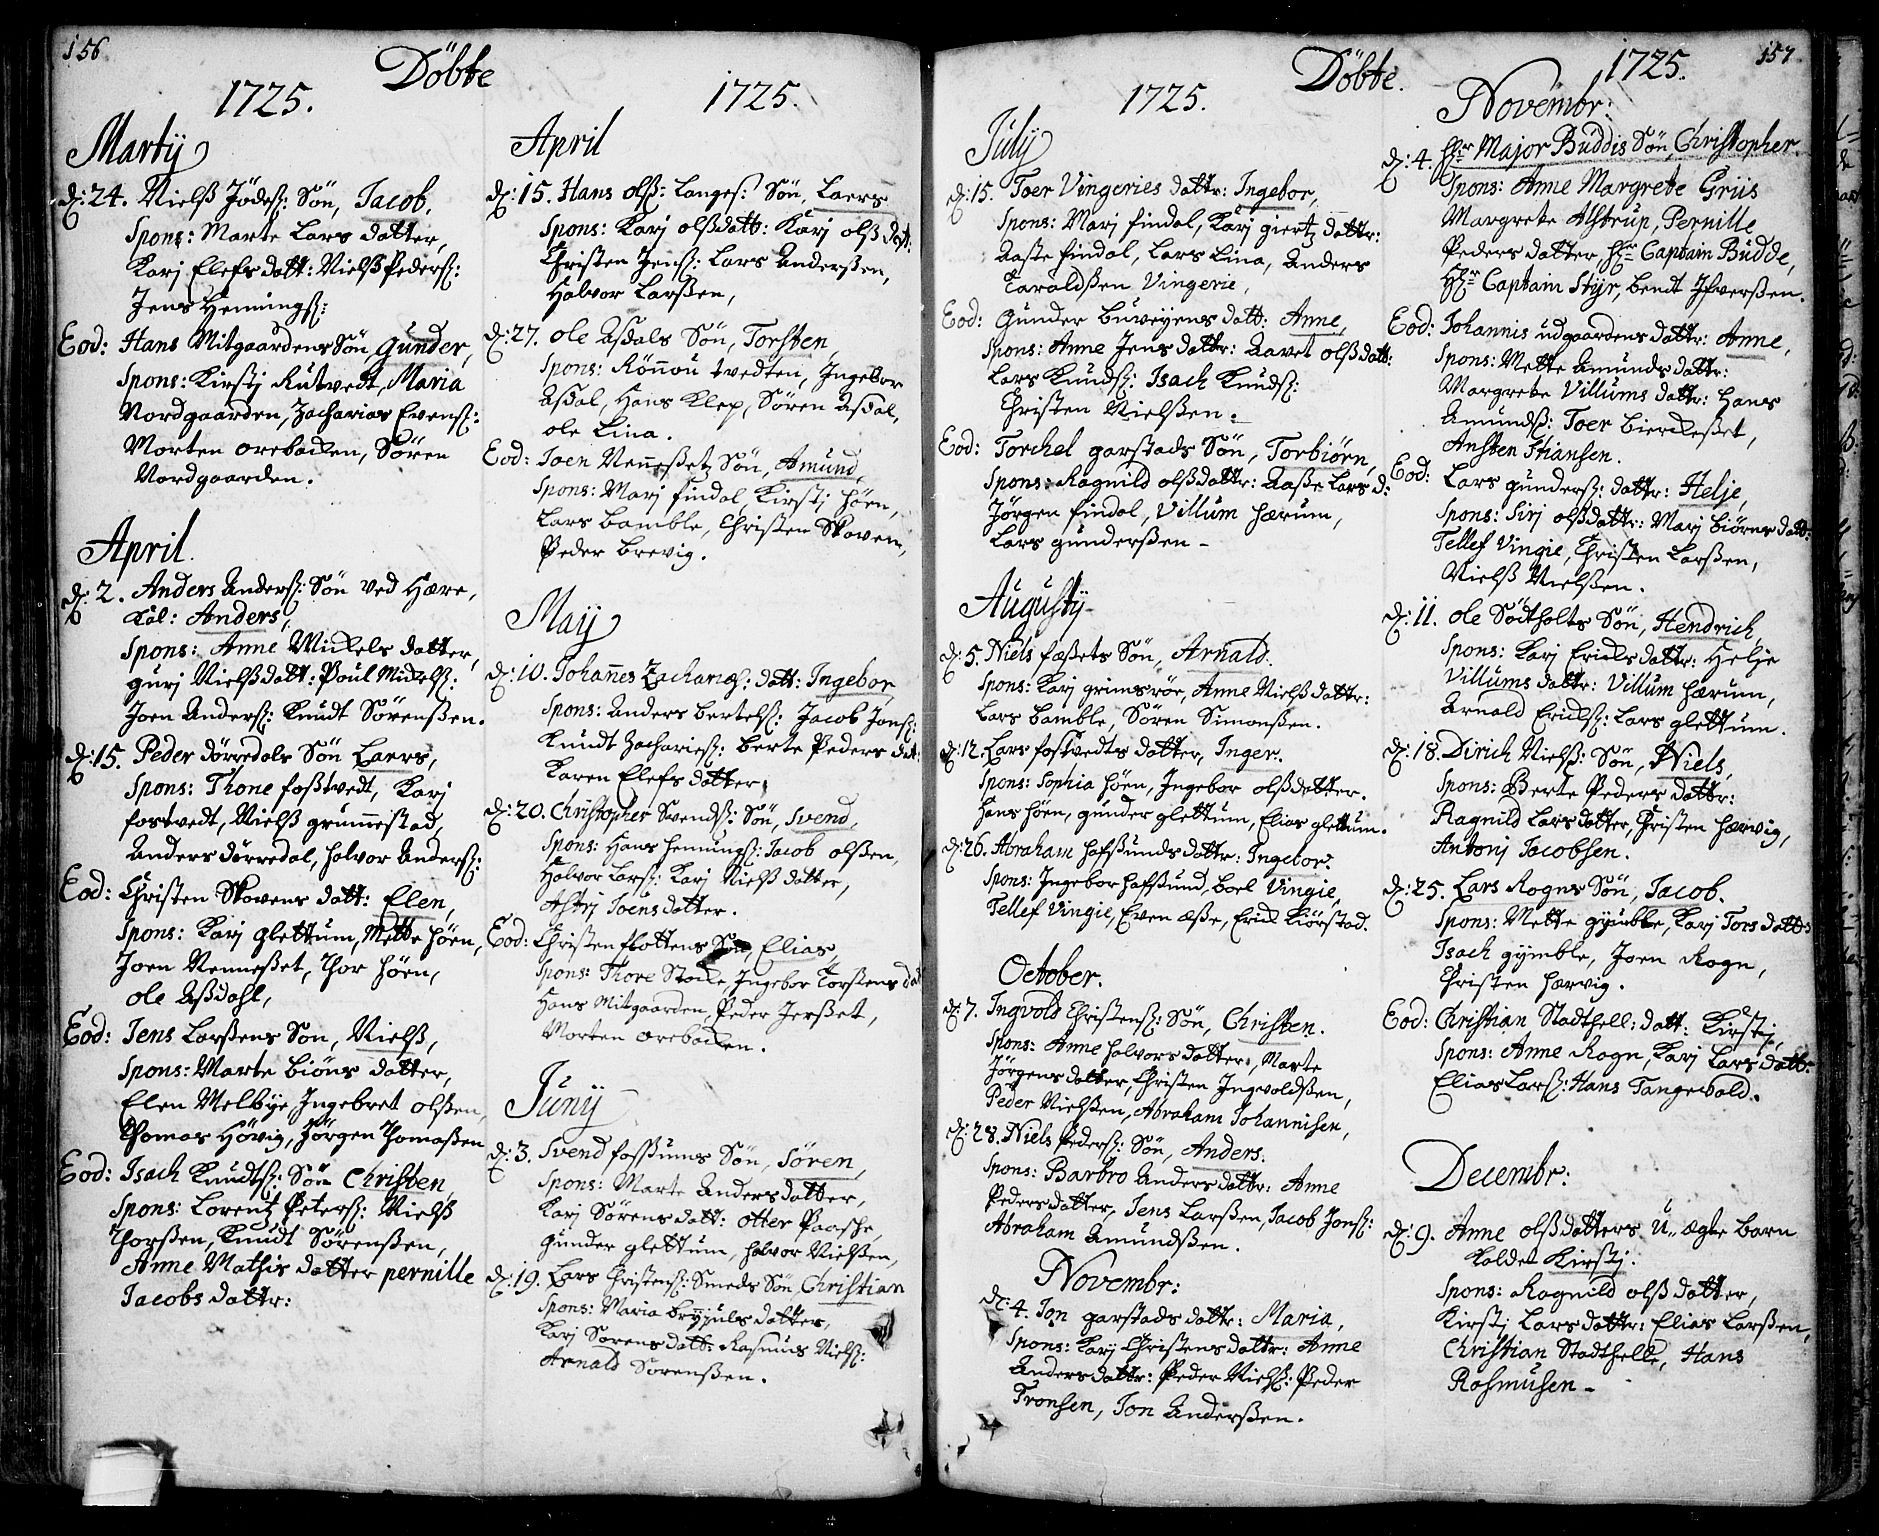 156
Döbte
1725.
Martij
d: 24. Nielß Jödeß: Sön, Jacob,
Spons: Marte Lars datter,
Karj Elefs datt: Nielß Pederß:
Jens Hemingß:
Eod: Hans Mitgaardens Sön Gunder,
Spons: Kirstj Rutvedt, Maria
Nordgaarden, Zacharias Evenß:
Morten Orebacken, Sören
Nordgaarden.
April
d: 2. Anders Anderß: Sön ved Hære,
Kal: Anders,
Spons: Anne Mickels datter,
gurj Nielß datt: Poul Mickelß:
Joen Anderß: Knudt Sörenßen.
d: 15. Peder dörredals Sön Laers,
Spons: Thone foßtvedt, Karj
fostvedt, Nielß grumestad,
Anders dörredal, halvor Anderß:
Eod: Christen Skovens datt: Elen,
Spons: Karj glettum, Mette höen,
Joen Renneßet, Thor höen,
ole Aßdahl,
Eod: Jens Larßens Sön, Nielß,
Spons: Marte Biöns datter,
Elen Melbye, Ingebret olßen,
Thomas Hövig, Jörgen Thomaßen
Eod: Isach Knudtß: Sön Christen,
Spons: Lorentz Peterß: Nielß
Thorßen, Knudt Sörenßen,
Anne Mathis datter pernille
Jacobs dattr:
1725.
April
d: 15. Hans olß: Langes: Sön, Laers,
Spons: Karj olßdatt: Karj olß datt:
Christen Jenß: Lars Anderßen,
Halvor Larßen,
d: 27. ole Aßdals Sön, Torsten,
Spons: Rönnou tvedten, Ingebor
Aßdal, Hans Klep, Sören Aßdal,
ole Lina.
Eod: Joen Renneßetz Sön, Amund,
Spons: Marj findal, Kirstj höen,
Lars Bamble, Christen Skoven,
Peder Brevig.
Maij
d: 10. Johannes Zachariæß: datt: Ingebor,
Spons: Anders Bertelß: Jacob Jonß:
Knudt Zacharieß: Berte Peders datt:
Karen Elefs datter.
d: 20. Christopher Swendß: Sön, Svend,
Spons: Hans Hemingß: Jacob olßen,
Halvor Larß: Karj Nielß datter,
Astrj Joens datter.
Eod: Christen flottens Sön, Elias,
Spons: Thore Stocke, Ingebor Torstens dat
Hans Mitgaarden, Peder Jerßet,
Morten Orebacken.
Junij
d: 3. Svend foßßums Sön, Sören,
Spons: Marte Anders datter,
Karj Sörens datt: Otter Paasche,
Gunder glettum, halvor Nielßen,
d: 19. Lars Christenß: Smeds Sön, Christian
Spons: Maria Bryjuls datter,
Karj Sörens datt: Rasmus Nielß:
Arnald Sörenßen.
157
Döbte.
1725.
July
d: 15. Toer Vingeries dattr: Ingebor,
Spons: Marj findal, Karj giertz dattr:
Aaste findal, Lars Lina, Anders
Taraldßen Vingerie,
Eod: Gunder Buveyens datt: Anne,
Spons: Anne Jens dattr: Aavet olßdatt:
Lars Knudß: Isach Knudß:
Christen Nielßen.
Eod: Torchel garstads Sön, Torbiörn,
Spons: Ragnild olßdattr: Aaße Lars d:
Jörgen findal, Villum Hærum,
Lars gunderßen -
Augustij
d: 5. Niels fæßets Sön, Arnald.
Spons: Karj grimsrör, Anne Nielß dattr:
Lars Bamble, Sören Simonßen.
d: 12. Lars fostvedts datter, Inger.
Spons: Sophia höen, Ingebor olßdatter.
Hans höen, gunder glettum, Elias glettum.
d: 26. Abraham hafßunds dattr: Ingebor.
Spons: Ingebor hafßund, Boel Vingie,
Tellef Vingie, Even æße, Erick Kiörstad.
October.
d: 7. Ingvold Christenß: Sön, Christen.
Spons: Anne halvors datter, Marte
Jörgens datter, Christen Ingvoldßen,
Peder Nielßen, Abraham Johannisen,
d: 28. Niels Pederß: Sön, Anders.
Spons: Barbro Anders dattr: Anne
Peders datter, Jens Larßen, Jacob Jonß:
Abraham Amundßen.
Novembr:
d: 4. Jon garstads dattr: Maria,
Spons: Karj Christens dattr: Anne
Anders dattr: Peder Nielß: Peder
Tronsen, Jon Anderßen.
1725.
Novembr:
d: 4. Hr Major Buddis Sön, Christopher.
Spons: Anne Margrete Griis
Margrete Alstrup, Pernille
Peders datter, Hr Captain Budde,
Hr Captain Styr, Bendt Ifverßen.
Eod: Johannis udgaardens dattr: Anne,
Spons: Mette Amunds dattr:
Margrete Villums dattr: Hans
Amundß: Toer Bierckeßet,
Ansten Stiansen.
Eod: Lars gunderß: dattr: Helje,
Spons: Sirj olßdattr: Marj Biörns datt:
Tellef Vingie, Christen Larßen,
Nielß Nielßen.
d: 11. ole Södtholts Sön, Hendrich,
Spons: Karj Ericks dattr: Helje
Villums dattr: Villum Hærum,
Arnald Erickß: Lars glettum.
d: 18. Dirich Nielß: Sön, Niels,
Spons: Berte Peders dattr:
Ragnild Lars datter, Christen Hærvig,
Antonj Jacobsen.
d: 25. Lars Rogns Sön, Jacob.
Spons: Mette gjumble, Karj Tors datt:
Isach gymble, Joen Rogn,
Christen Hærvig.
Eod: Christian Stadthell: datt: Kirstj,
Spons: Anne Rogn, Karj Lars datt:
Elias Larß: Hans Tangevald.
Decembr:
d: 9. Anne olßdatters U,, ægte barn
kaldet Kirstj.
Spons: Ragnild olß datter,
Kirstj Lars dattr: Elias Larßen,
Christian Stadthelle, Hans
Rasmusen -